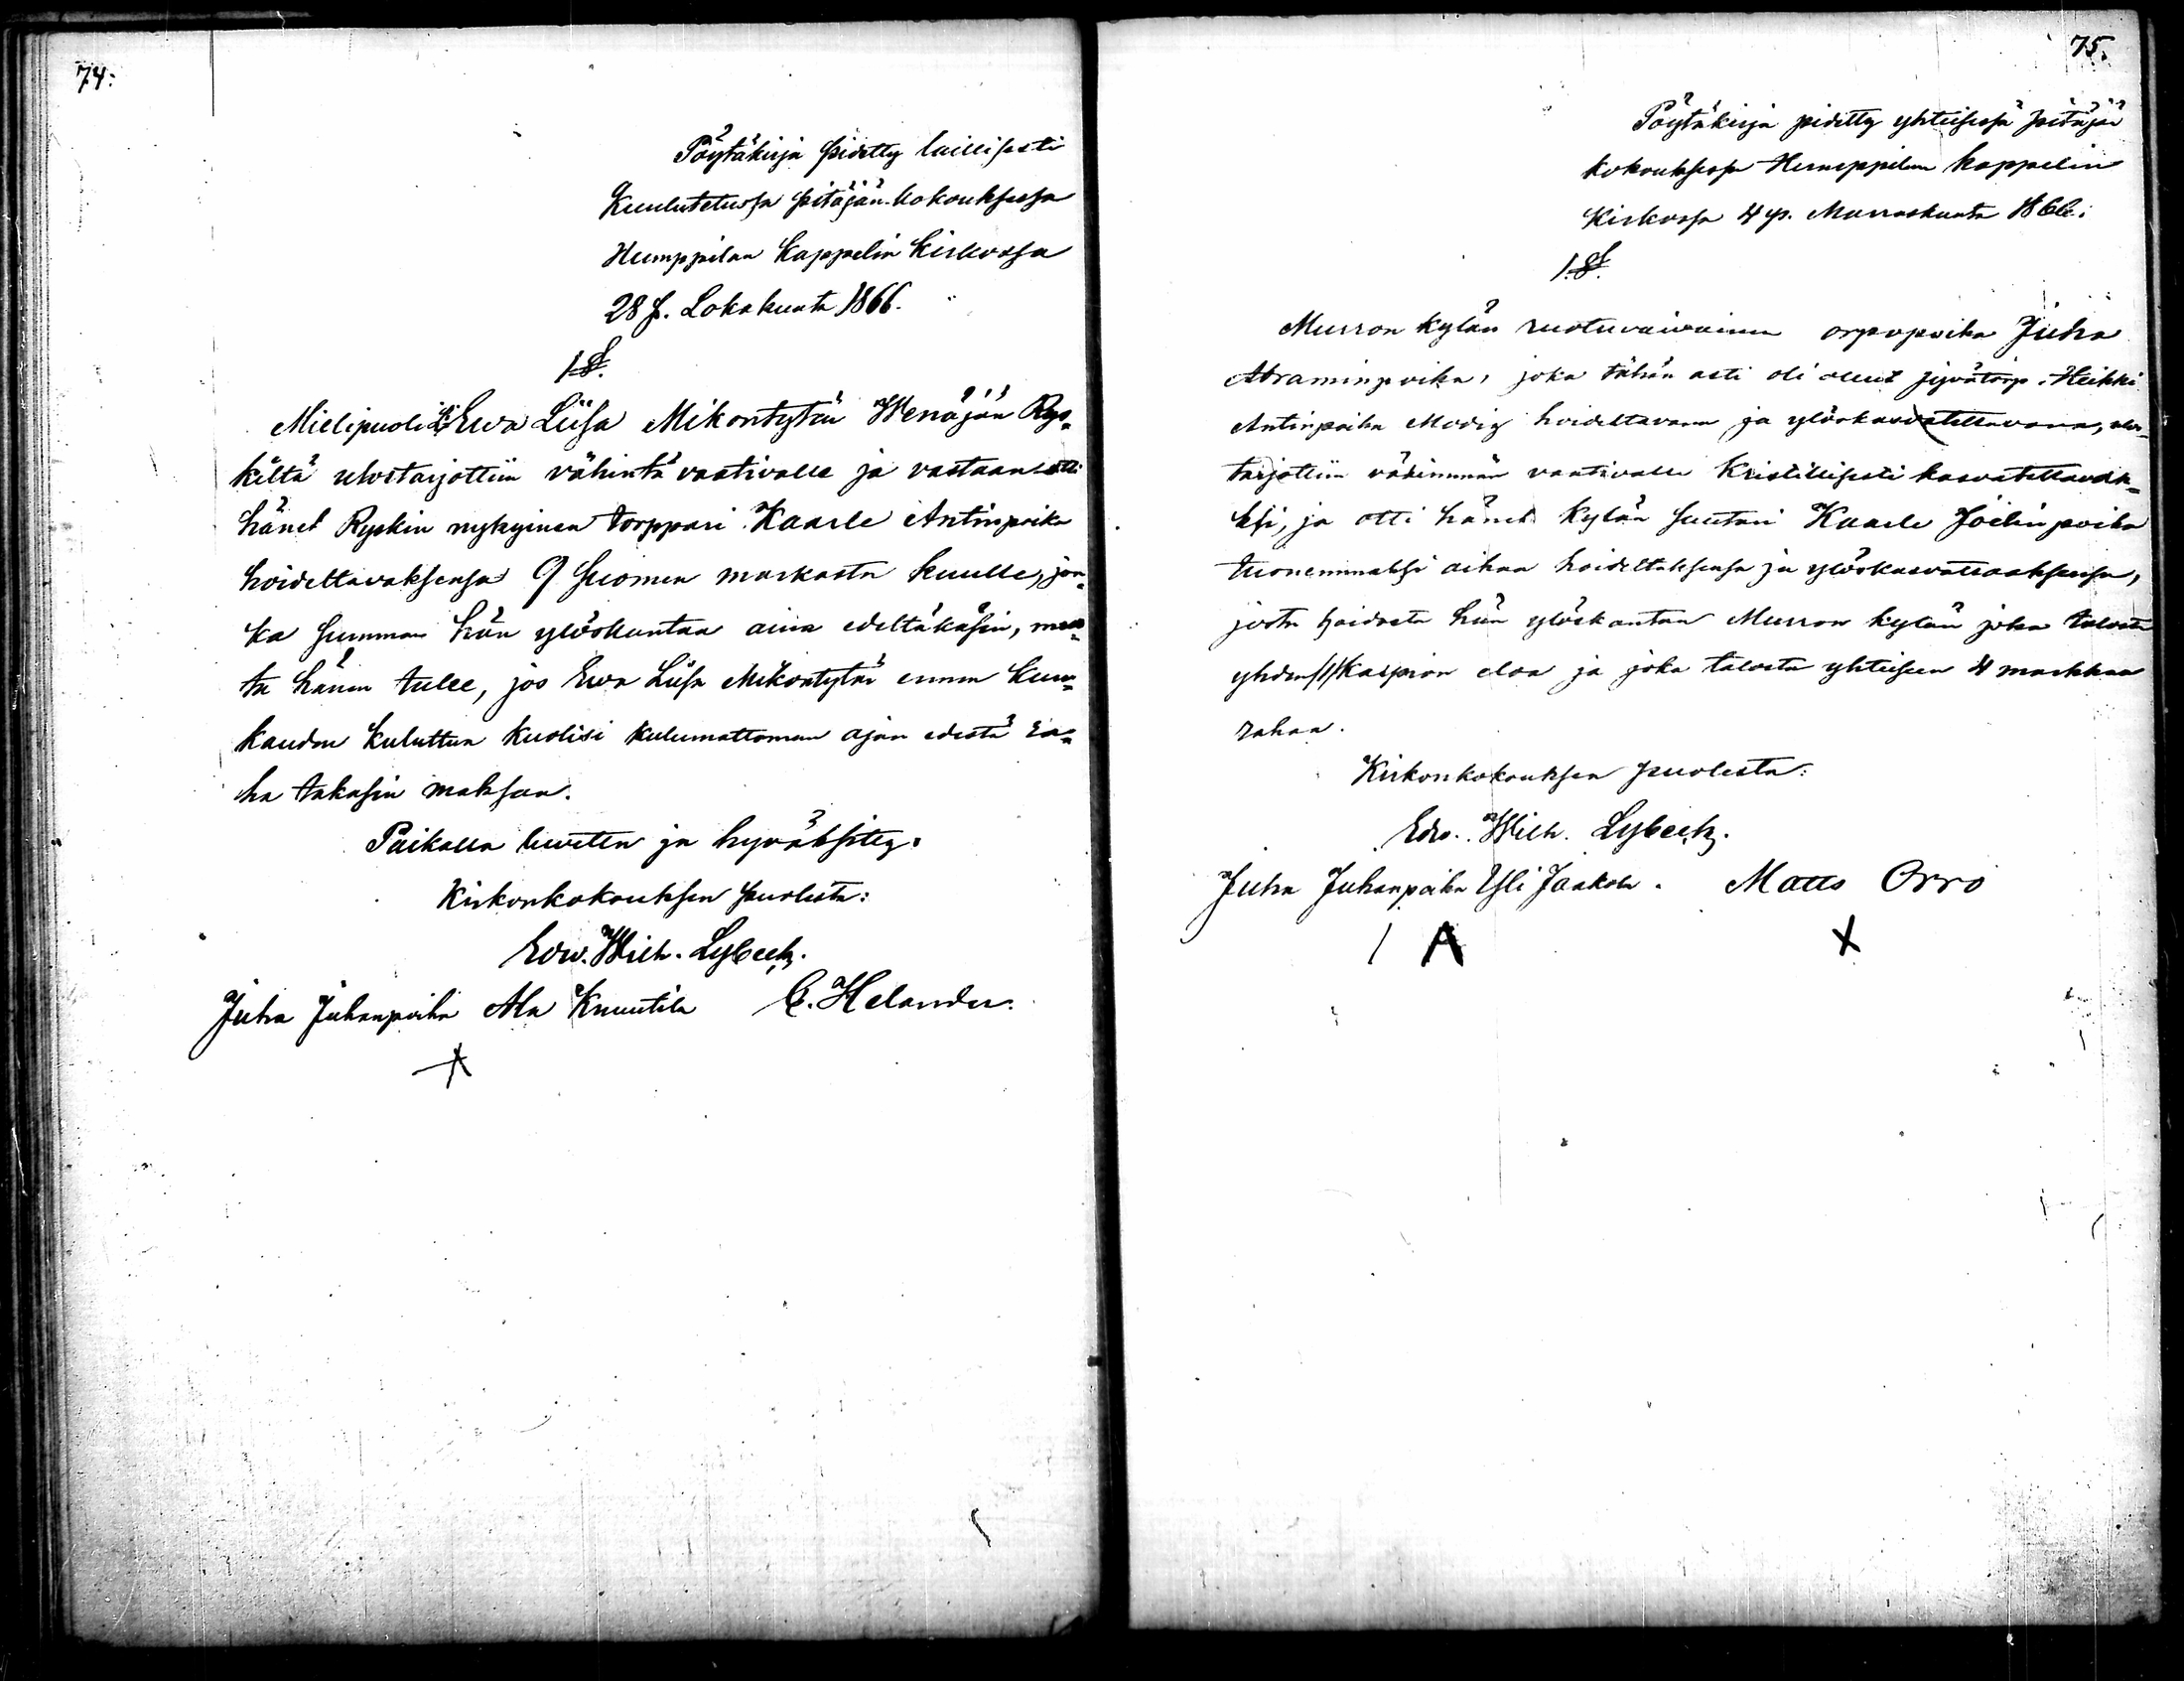 74.
Pöytäkirja pidetty laillisesti
Kuulutetussa pitäjän-kokouksessa
Humppilan Kappelin Kirkossa
28 p. Lokakuuta 1866.
1 §.
Mielipuoli Ewa Liisa Mikontytär Wenäjän Rys-
kiltä ulostarjottiin vähintä vaativalle ja vastaan otti
hänet Ryskin nykyinen torppari Kaarle Antinpoika
hoidettavaksensa 9 Suomen markasta kuulle, jon-
ka summan hän ylöskantaa aina edeltäkäsin, mut-
ta hänen tulee, jos Ewa Liisa Mikontytär ennen kuu-
kauden kuluttua kuolisi kulumattoman ajan edestä ra-
ha takasin maksaa.
Paikalla luvettu ja hyväksitty.
Kirkonkokouksen puolesta:
Edw. Wilh. Lybeck.
Juha Juhanpoika Ala Knuutila C. Helander.
75.
Pöytäkirja pidetty yhteisessä pitäjän
kokouksessa Humppilan kappelin
Kirkossa 4 p. Marraskuuta 1866.
1 §.
Murron kylän ruotuvaivainen orpopoika Juha
Abraminpoika, joka tähän asti oli ollut jyvätorp. Heikki
Antinpoika Modig hoidettavana ja ylöskasvatettavana, ulos-
tarjottiin vähimmän vaativalle Kristillisesti kasvatettavak-
ksi, ja otti hänet kylän suutari Kaarle Joelinpoika
tuonemmaksi aikaa hoidettaksensa ja ylöskasvattaaksensa,
josta hoidosta hän ylöskantaa Murron kylän joka talosta
yhden /1/ Kaspion eloa ja joka talosta yhteiseen 4 markkaa
rahaa.
Kirkonkokouksen puolesta:
Edw. Wilh. Lybeck.
Juha Juhanpoika Yli Jaakola. Matts Orro